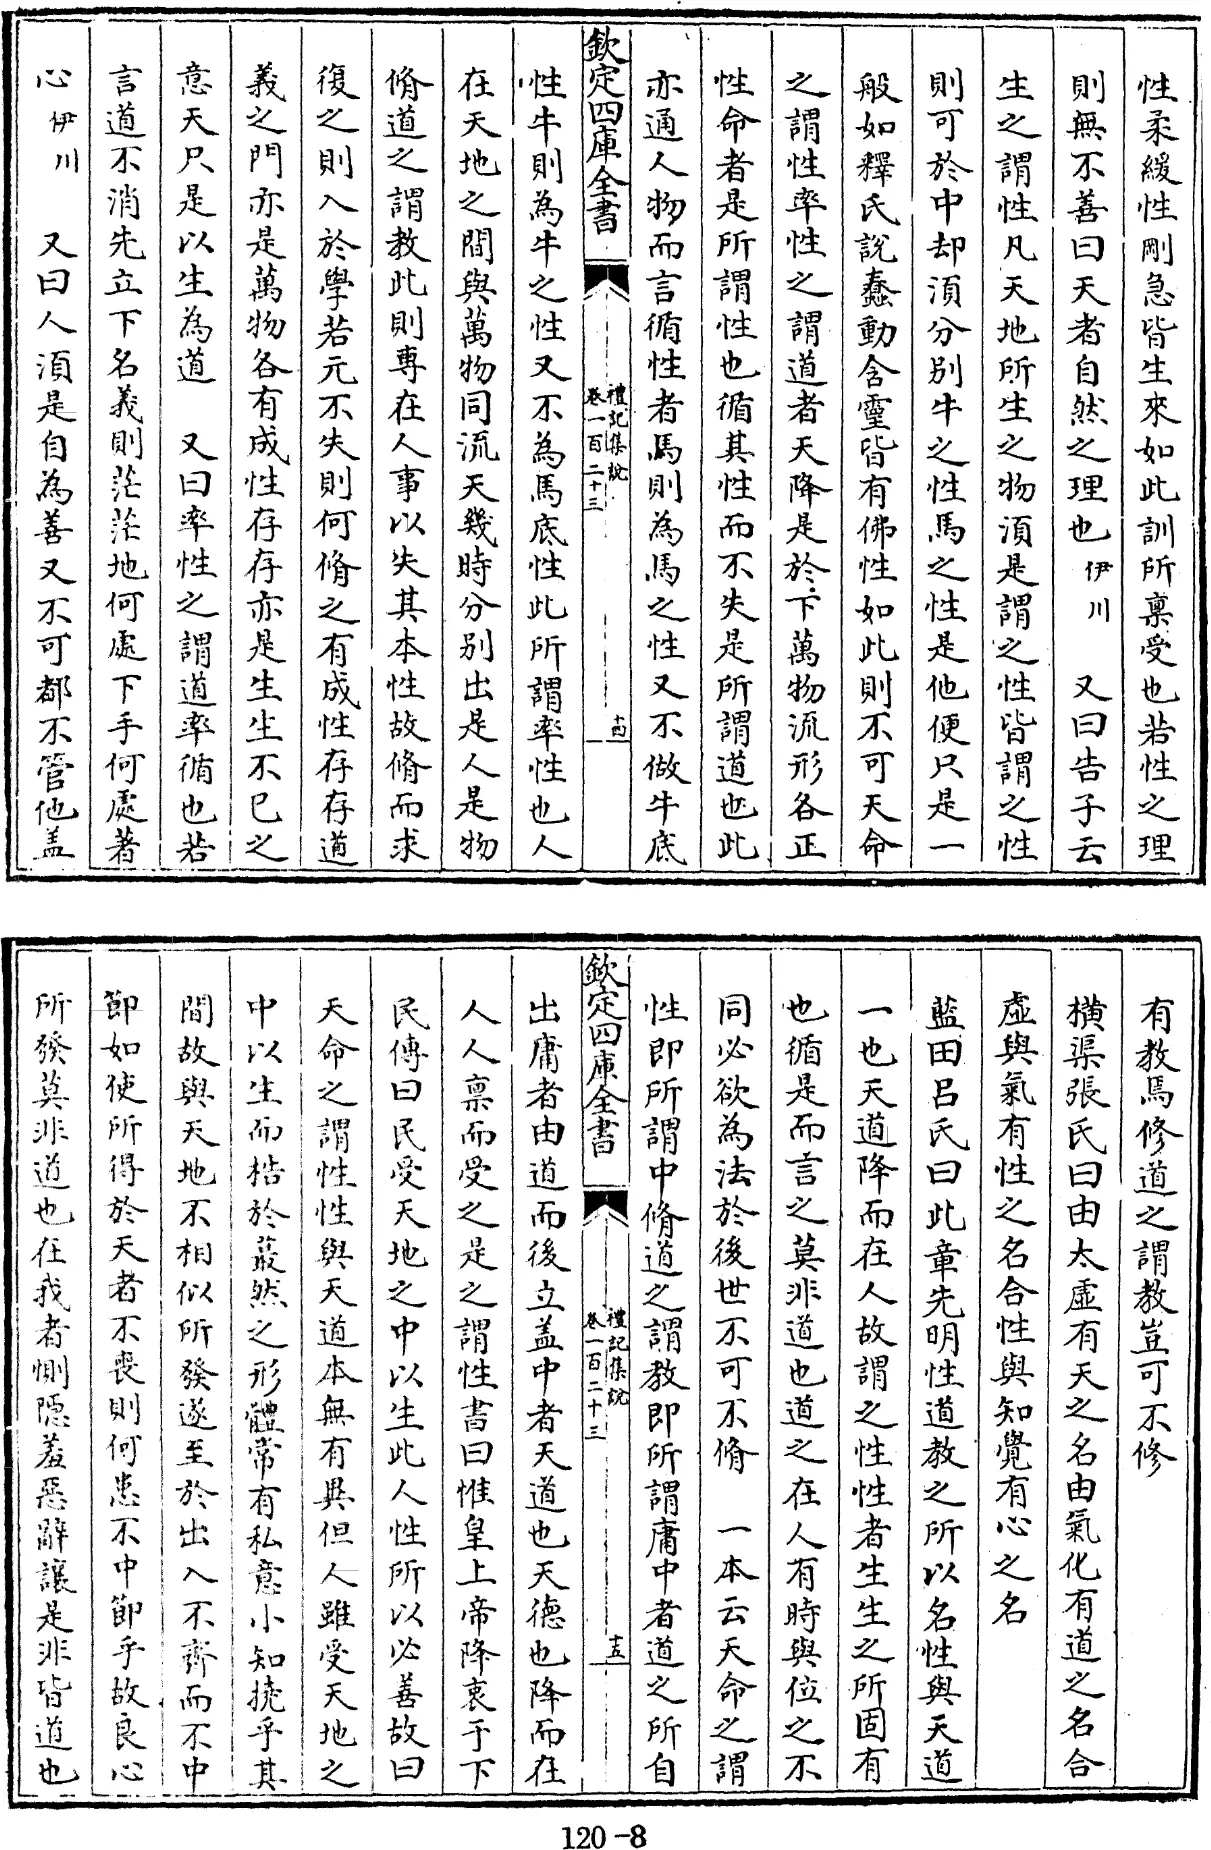 性柔緩性剛急皆生來如此訓所禀受也若性之理
則無不善曰天者自然之理也 伊川 又曰告子云
生之謂性凡天地所生之物須是謂之性皆謂之性
則可於中却須分别牛之性馬之性是他便只是一
般如釋氏說蠢動含靈皆有佛性如此則不可天命
之謂性率性之謂道者天降是於下萬物流形各正
性命者是所謂性也循其性而不失是所謂道也此
亦通人物而言循性者馬則為馬之性又不做牛底
欽定四庫全書
禮記集說
卷一百二十三
十四
性牛則為牛之性又不為馬底性此所謂率性也人
在天地之間與萬物同流天幾時分别出是人是物
脩道之謂教此則專在人事以失其本性故脩而求
復之則入於學若元不失則何脩之有成性存存道
義之門亦是萬物各有成性存存亦是生生不已之
意天只是以生為道 又曰率性之謂道率循也若
言道不消先立下名義則茫茫地何處下手何處著
心 伊川 又曰人須是自為善又不可都不管他盖
有教焉修道之謂教豈可不修
橫渠張氏曰由太虛有天之名由氣化有道之名合
虛與氣有性之名合性與知覺有心之名
藍田吕氏曰此章先明性道教之所以名性與天道
一也天道降而在人故謂之性性者生生之所固有
也循是而言之莫非道也道之在人有時與位之不
同必欲為法於後世不可不脩 一本云天命之謂
性即所謂中脩道之謂教即所謂庸中者道之所自
欽定四庫全書
禮記集說
卷一百二十三
十五
出庸者由道而後立盖中者天道也天德也降而在
人人禀而受之是之謂性書曰惟皇上帝降衷于下
民傳曰民受天地之中以生此人性所以必善故曰
天命之謂性性與天道本無有異但人雖受天地之
中以生而梏於蕞然之形體常有私意小知撓乎其
間故與天地不相似所發遂至於出入不齊而不中
節如使所得於天者不喪則何患不中節乎故良心
所發莫非道也在我者惻隠羞惡辭讓是非皆道也
120-8